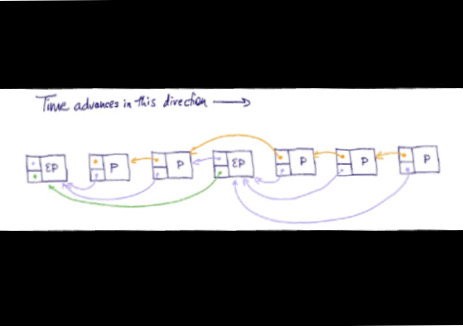 Time advances in this direction →
EP P P EP P P P